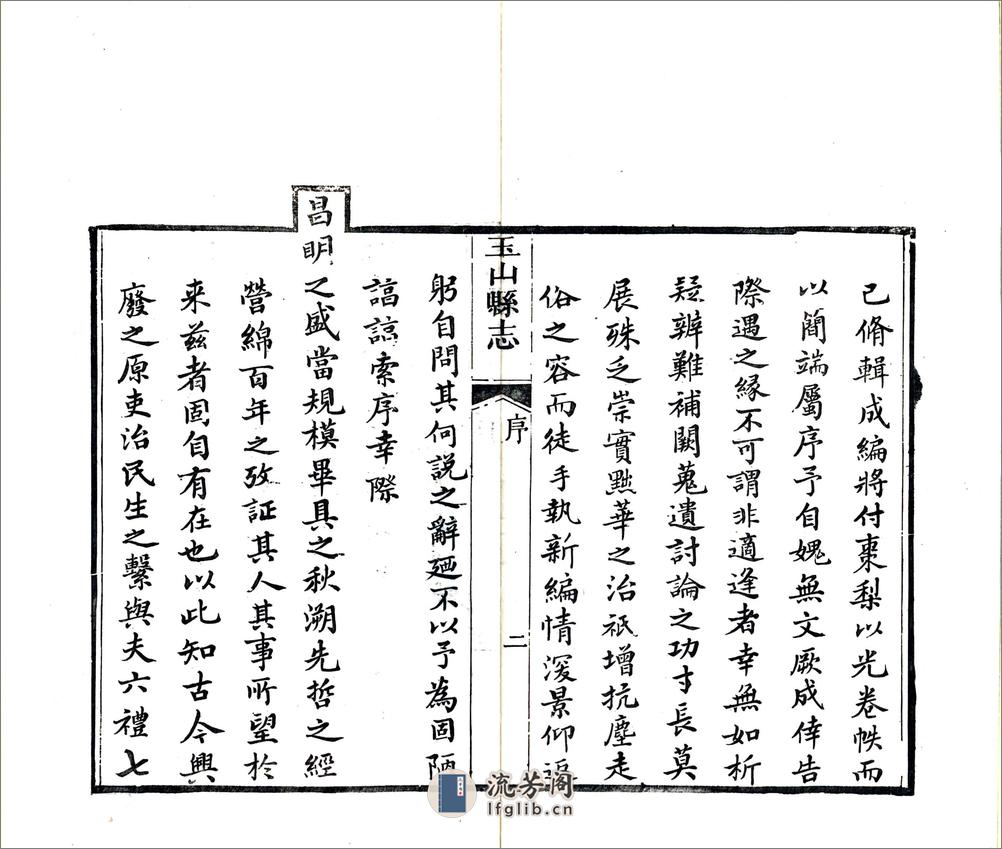 已脩輯成編將付棗梨以光卷帙而
以簡端屬序予自媿無文厥成倖告
際遇之緣不可謂非適逢者幸無如析
疑辨難補闕蒐遺討論之功寸長莫
展殊乏崇實黜華之治祇增抗塵走
俗之容而徒手執新編情深景仰
玉山縣志
序
二
躬自問其何說之辭廼不以予為固陋
諄諄索序幸際
昌明之盛當規模畢具之秋溯先哲之經
營綿百年之攷証其人其事所望於
来茲者固自有在也以此知古今興
廢之原吏治民生之繫與夫六禮七
流芳阁
lfglib.cn